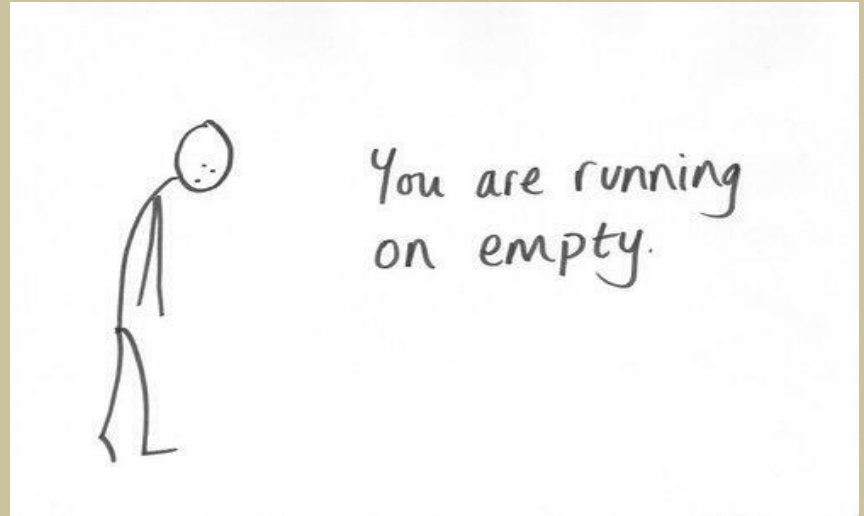 You are running
on empty.